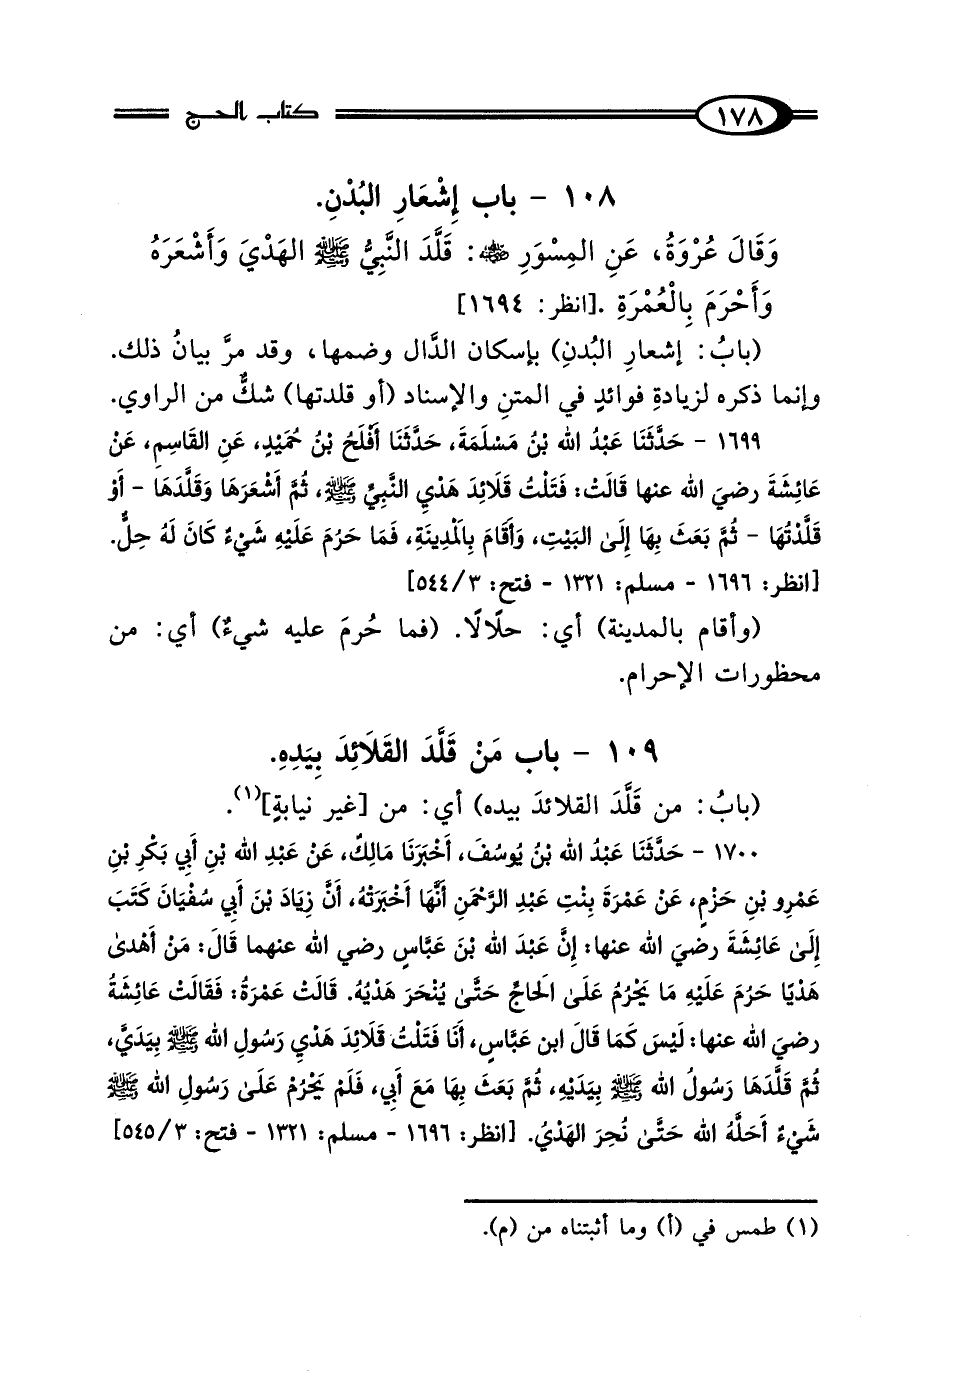 ١٧٨ كتاب الحج
١٠٨ - باب إِشْعَارِ البُدْنِ.
وَقَالَ عُرْوَةُ، عَنِ المِسْوَرِ ﵁: قَلَّدَ النَّبِيُّ ﷺ الهَدْيَ وَأَشْعَرَهُ
وَأَحْرَمَ بِالْعُمْرَةِ .[انظر: ١٦٩٤]
(بابُ: إشعارِ البُدنِ) بإسكان الدَّال وضمها، وقد مرَّ بيانُ ذلك.
وإنما ذكره لزيادةِ فوائدٍ في المتنِ والإسناد (أو قلدتها) شكٌّ من الراوي.
١٦٩٩ - حَدَّثَنَا عَبْدُ الله بْنُ مَسْلَمَةَ، حَدَّثَنَا أَفْلَحُ بْنُ حُمَيْدٍ، عَنِ القَاسِمِ، عَنْ
عَائِشَةَ رضيَ الله عنها قَالَتْ: فَتَلْتُ قَلَائِدَ هَدْيِ النَّبِيِّ ﷺ، ثُمَّ أَشْعَرَهَا وَقَلَّدَهَا - أَوْ
قَلَّدْتُهَا - ثُمَّ بَعَثَ بِهَا إِلَىٰ البَيْتِ، وَأَقَامَ بِالْمَدِينَةِ، فَمَا حَرُمَ عَلَيْهِ شَيْءٌ كَانَ لَهُ حِلٌّ.
[انظر: ١٦٩٦ - مسلم: ١٣٢١ - فتح: ٣/ ٥٤٤]
(وأقام بالمدينة) أي: حلالًا. (فما حُرمَ عليه شيءٌ) أي: من
محظورات الإحرام.
١٠٩ - باب مَنْ قَلَّدَ القَلَائِدَ بِيَدِهِ.
(بابُ: من قَلَّدَ القلائدَ بيده) أي: من [غير نيابةٍ](١).
١٧٠٠ - حَدَّثَنَا عَبْدُ الله بْنُ يُوسُفَ، أَخْبَرَنَا مَالِكٌ، عَنْ عَبْدِ الله بْنِ أَبِي بَكْرِ بْنِ
عَمْرِو بْنِ حَزْمٍ، عَنْ عَمْرَةَ بِنْتِ عَبْدِ الرَّحْمَنِ أَنَّهَا أَخْبَرَتْهُ، أَنَّ زِيَادَ بْنَ أَبِي سُفْيَانَ كَتَبَ
إِلَىٰ عَائِشَةَ رضيَ الله عنها: إِنَّ عَبْدَ الله بْنَ عَبَّاسٍ رضي الله عنهما قَالَ: مَنْ أَهْدىٰ
هَدْيًا حَرُمَ عَلَيْهِ مَا يَحْرُمُ عَلَىٰ الحَاجِّ حَتَّىٰ يُنْحَرَ هَدْيُهُ. قَالَتْ عَمْرَةُ: فَقَالَتْ عَائِشَةُ
رضيَ الله عنها: لَيْسَ كَمَا قَالَ ابن عَبَّاسٍ، أَنَا فَتَلْتُ قَلَائِدَ هَدْيِ رَسُولِ الله ﷺ بِيَدَيَّ،
ثُمَّ قَلَّدَهَا رَسُولُ الله ﷺ بِيَدَيْهِ، ثُمَّ بَعَثَ بِهَا مَعَ أَبِي، فَلَمْ يَحْرُمْ عَلَىٰ رَسُولِ الله ﷺ
شَيْءٌ أَحَلَّهُ الله حَتَّىٰ نُحِرَ الهَدْيُ. [انظر: ١٦٩٦ - مسلم: ١٣٢١ - فتح: ٣/ ٥٤٥]
(١) طمس في (أ) وما أثبتناه من (م).